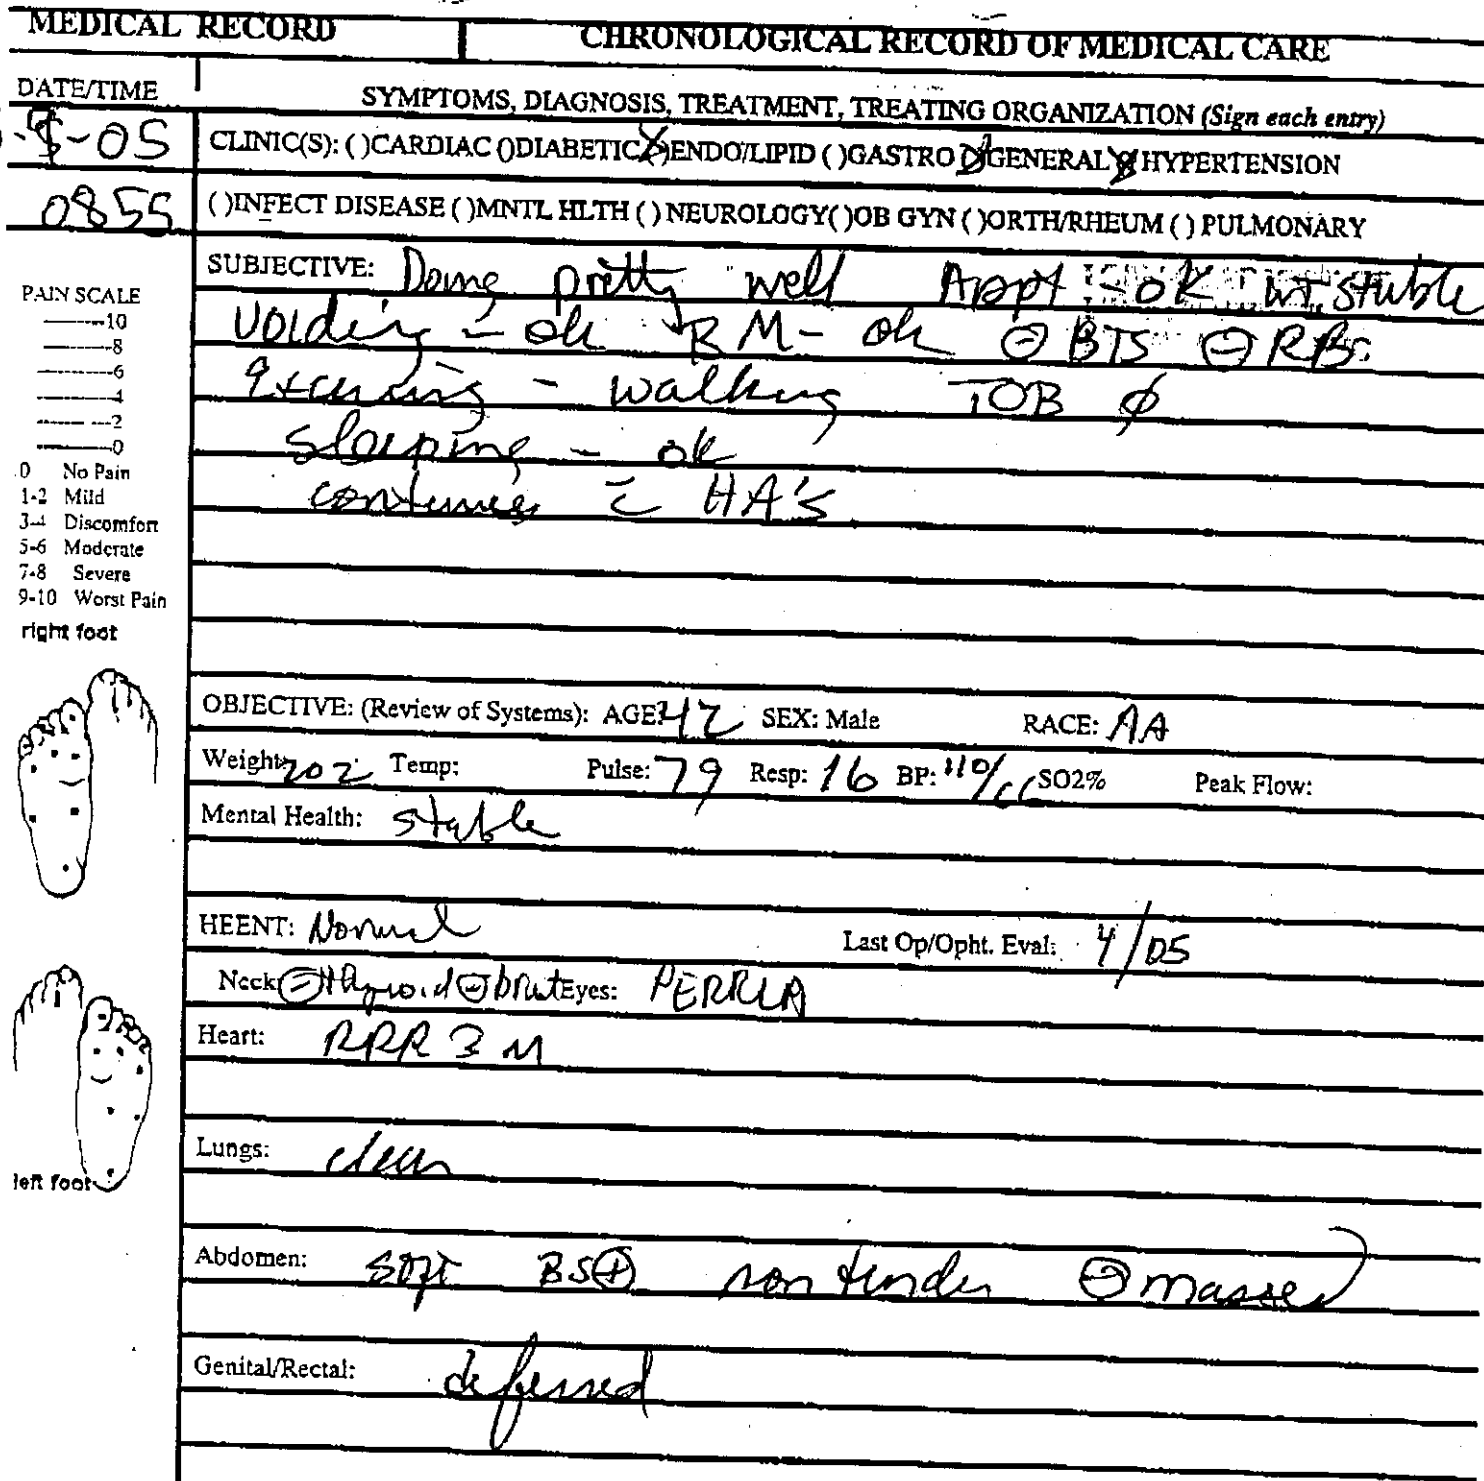 MEDICAL RECORD CHRONOLOGICAL RECORD OF MEDICAL CARE
DATE/TIME SYMPTOMS, DIAGNOSIS, TREATMENT, TREATING ORGANIZATION (Sign each entry)
-05 CLINIC(S): ( )CARDIAC ()DIABETIC (X)ENDO/LIPID ( )GASTRO (X)GENERAL (X) HYPERTENSION
0855 ( )INFECT DISEASE ( )MNTL HLTH ( ) NEUROLOGY( )OB GYN ( )ORTH/RHEUM ( ) PULMONARY
SUBJECTIVE: Doing pretty well Appt - ok wt. stable
voiding - ok BM - ok ⊖ BTS ⊖
- walking TOB ∅
sleeping - ok
continues c̄ HA's
PAIN SCALE
-------10
--------8
---------6
---------4
------ ---2
---------0
0 No Pain
1-2 Mild
3-4 Discomfort
5-6 Moderate
7-8 Severe
9-10 Worst Pain
right foot
OBJECTIVE: (Review of Systems): AGE: 42 SEX: Male RACE: AA
Weight: 202 Temp: Pulse: 79 Resp: 16 BP: 110/ SO2% Peak Flow:
Mental Health: stable
HEENT: Normal Last Op/Opht. Eval: 4/05
Neck: ⊖ thyroid ⊖ bruit Eyes: PERRLA
Heart: RRR M
Lungs: clear
left foot
Abdomen: soft BS⊕ non tender ⊖ masses
Genital/Rectal: deferred